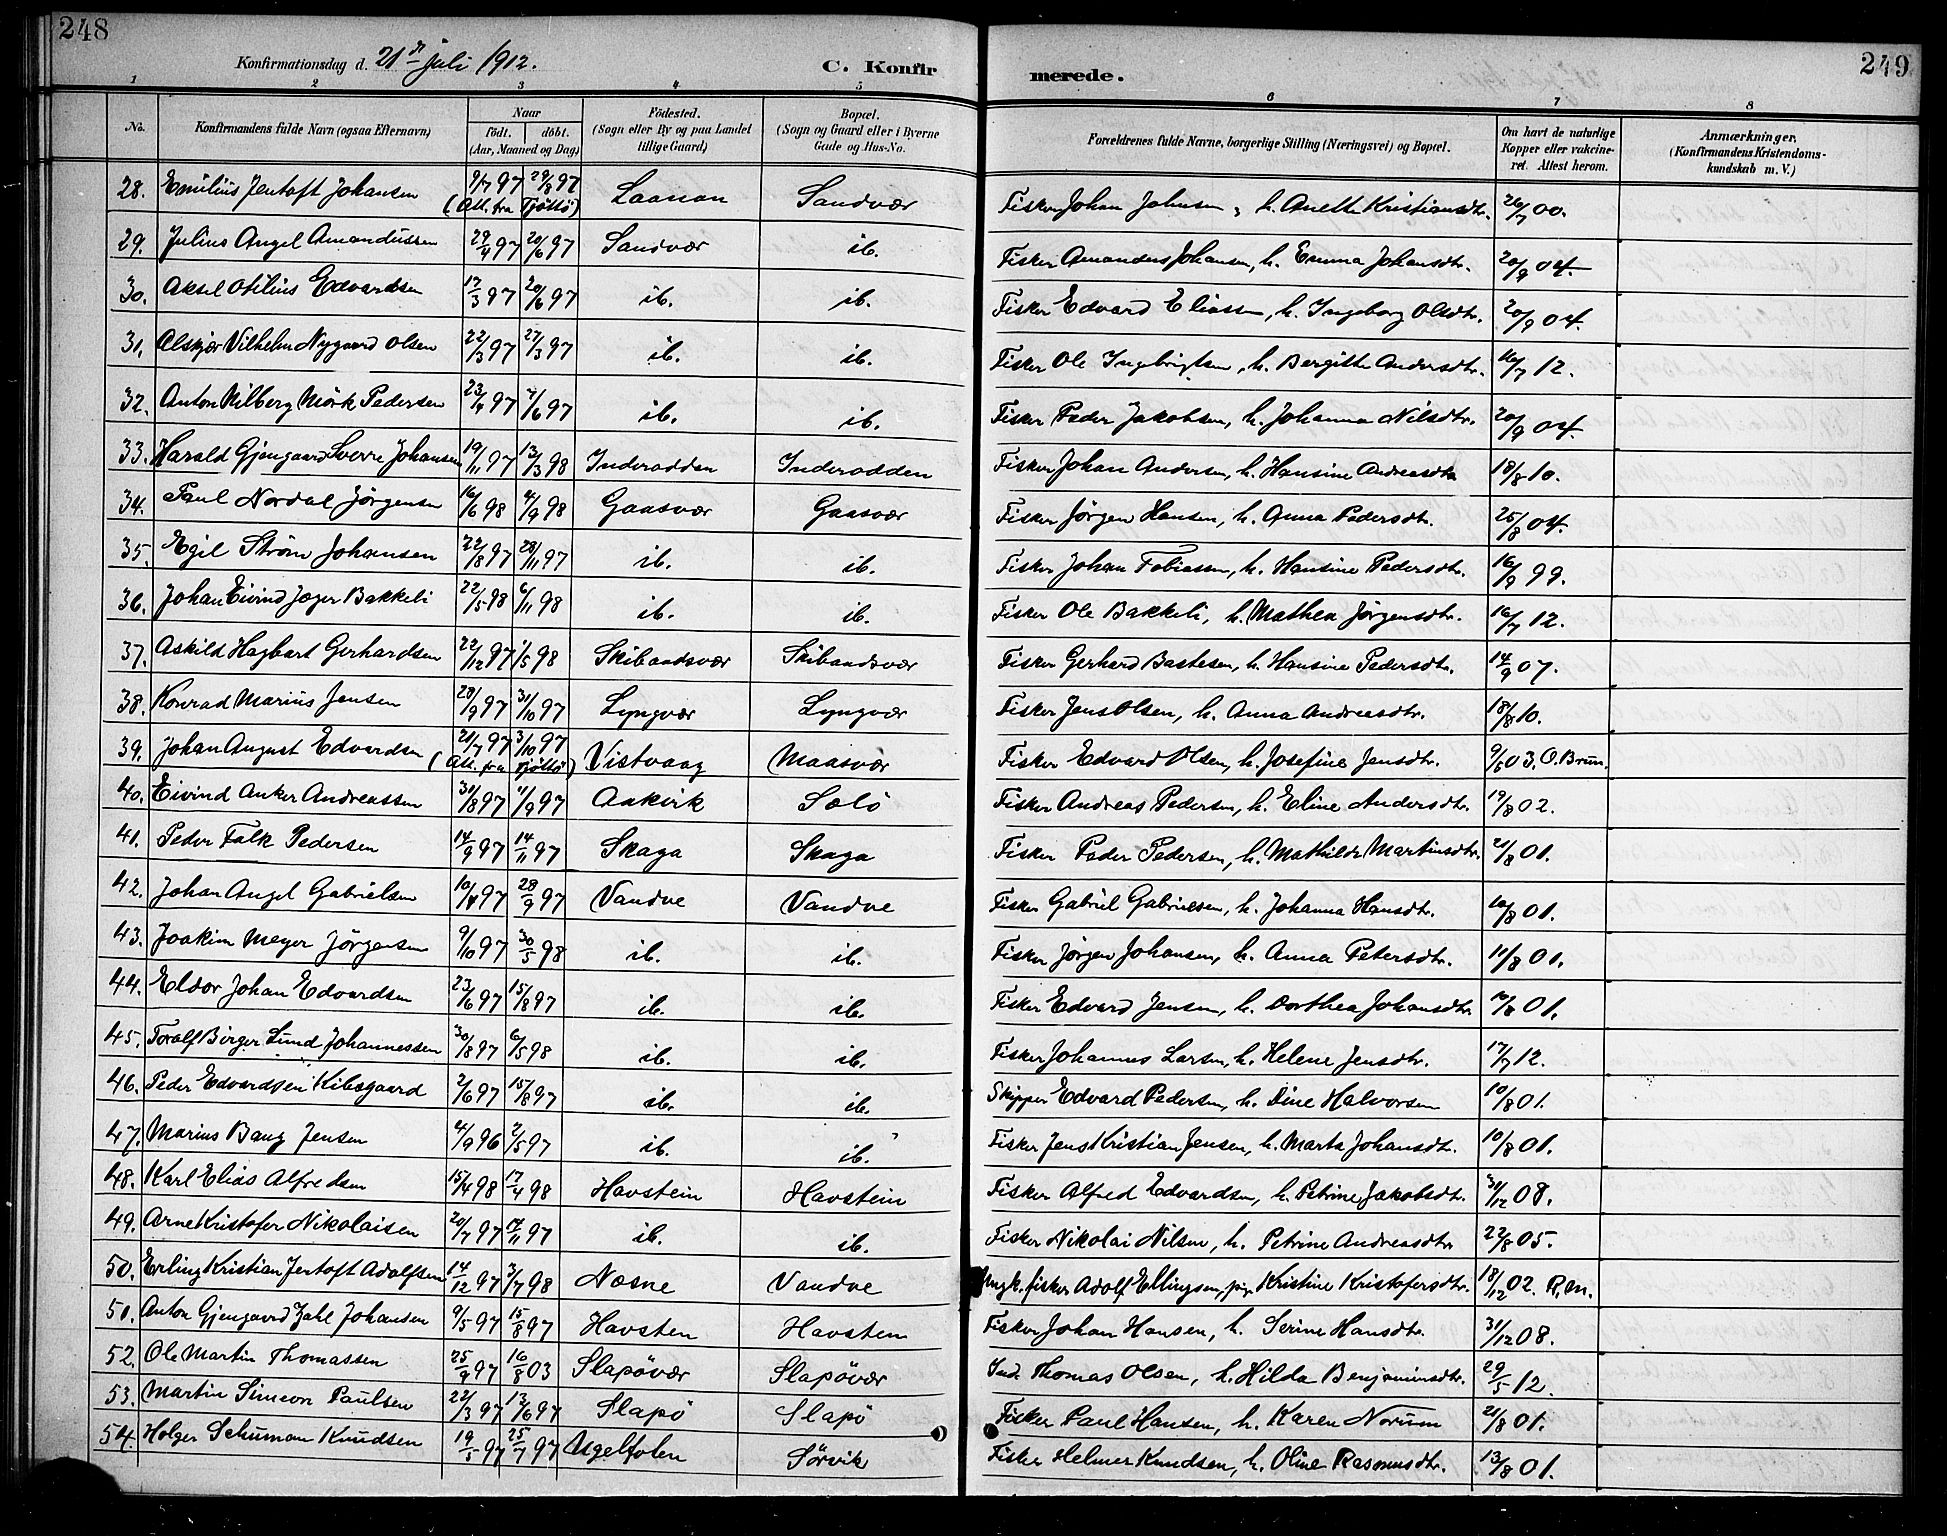 248
Konfirmationsdag d. 21de juli 1912.
C. Konfir
merede.
249
1 2 3 4 5 6 7 8
No. Konfirmandens fulde Navn (ogsaa Efternavn) Naar födt. döbt. (Aar, Maaned og Dag) Födested. (Sogn eller By og paa Landet tillige Gaard) Bopæl. (Sogn og Gaard eller i Byerne Gade og Hus-No. Forældrenes fulde Navne, borgerlige Stilling (Næringsvei) og Bopæl. Om havt de naturlige Kopper eller vakcineret. Attest herom. Anmærkninger. (Konfirmandens Kristendomskundskab m. V.)
28. Emilius Jentoft Johansen 9/7 97 29/8 97 (Att. fra Tjøttø) Laanan Sandvær Fisker Johan Johnsen, h. Anette Kristiansdtr. 26/7 00.
29. Julius Angel Amandussen 29/4 97 20/6 97 Sandvær ib. Fisker Amandus Johansen, h. Emma Johansdtr. 20/9 04.
30. Aksel Otilius Edvardsen 17/3 97 20/6 97 ib. ib. Fisker Edvard Eliassen, h. Ingeborg Olsdtr. 20/9 04.
31. Alskjær Vilhelm Nygaard Olsen 22/3 97 27/3 97 ib. ib. Fisker Ole Ingebrigtsen, h. Bergitte Andersdtr. 16/7 12.
32. Anton Nilberg Mörk Pedersen 23/4 97 7/6 97 ib. ib. Fisker Peder Jakobsen, h. Johanna Nilsdtr. 20/9 04.
33. Harald Gjengaard Sverre Johansen 19/11 97 13/3 98 Inderodden Inderodden Fisker Johan Andersen, h. Hansine Andreasdtr 18/8 10.
34. Paul Nordal Jørgensen 16/6 98 4/9 98 Gaasvær Gaasvær Fisker Jørgen Hansen, h. Anna Pedersdtr. 25/8 04.
35. Egil Strøm Johansen 22/8 97 28/11 97 ib. ib. Fisker Johan Tobiassen, h. Hansine Pedersdtr. 16/9 99.
36. Johan Eivind Jæger Bakkeli 22/5 98 6/11 98 ib. ib. Fisker Ole Bakkeli, h. Mathea Jørgensdtr. 16/7 12.
37. Askild Hagbart Gerhardsen 22/12 97 1/5 98 Skibaadsvær Skibaadsvær Fisker Gerhard Bastesen, h. Hansine Pedersdtr. 14/9 07.
38. Konrad Marius Jensen 28/9 97 31/10 97 Lyngvær Lyngvær Fisker Jens Olsen, h. Anna Andreasdtr. 18/8 10.
39. Johan August Edvardsen 21/7 97 3/10 97 (Att. fra Tjøttø) Vistvaag Maasvær Fisker Edvard Olsen, h. Josefine Jensdtr. 9/6 03. O. Brun.
40. Eivind Anker Andreassen 31/8 97 11/9 97 Aakvik Sølö Fisker Andreas Pedersen, h. Eline Andersdtr. 19/8 02.
41. Peder Falk Pedersen 14/9 97 14/11 97 Skaga Skaga Fisker Peder Pedersen, h. Mathilde Martinsdtr. 21/8 01.
42. Johan Angel Gabrielsen 10/4 97 28/9 97 Vandve Vandve Fisker Gabriel Gabrielsen, h. Johanna Hansdtr. 10/8 01.
43. Joakim Meyer Jörgensen 9/10 97 30/5 98 ib. ib. Fisker Jørgen Johansen, h. Anna Petersdtr. 11/8 01.
44. Eldor Johan Edvardsen 23/6 97 15/8 97 ib. ib. Fisker Edvard Jensen, h. Dorthea Johansdtr. 10/8 01.
45. Toralf Birger Lund Johannessen 30/8 97 6/5 98 ib. ib. Fisker Johannes Larsen, h. Helene Jensdtr. 17/7 12.
46. Peder Edvardsen Kibsgaard 2/6 97 15/8 97 ib. ib. Skipper Edvard Pedersen, h. Dine Halvorsen 10/8 01.
47. Marius Bang Jensen 4/9 96 2/5 97 ib. ib. Fisker Jens Kristian Jensen, h. Marta Johansdtr. 10/8 01.
48. Karl Elias Alfredsen 15/4 98 17/4 98 Havstein Havstein Fisker Alfred Edvardsen, h. Petrine Jakobsdtr. 31/12 08.
49. Arne Kristofer Nikolaisen 20/7 97 14/11 97 ib. ib. Fisker Nikolai Nilsen, h. Petrine Andreasdtr 22/8 05.
50. Erling Kristian Jentoft Adolfsen 14/12 97 3/7 98 Næsne Vandve Ungk. fisker Adolf Ellingsen, pig. Kristine Kristofersdtr. 18/12 02. R.m.
51. Anton Gjengaard Zahl Johansen 9/5 97 15/8 97 Havsten Havsten Fisker Johan Hansen, h. Serine Hansdtr. 31/12 08.
52. Ole Martin Thomassen 25/9 97 16/8 03 Slapövær Slapövær Ind. Thomas Olsen, h. Hilda Benjaminsdtr. 29/5 12.
53. Martin Simeon Paulsen 22/3 97 13/6 97 Slapö Slapö Fisker Paul Hansen, h. Karen Norum 21/8 01.
54. Holger Schuman Knudsen 19/5 97 25/7 97 Ugelfolen Sörvik Fisker Helmer Knudsen, h. Oline Rasmusdtr. 13/8 01.